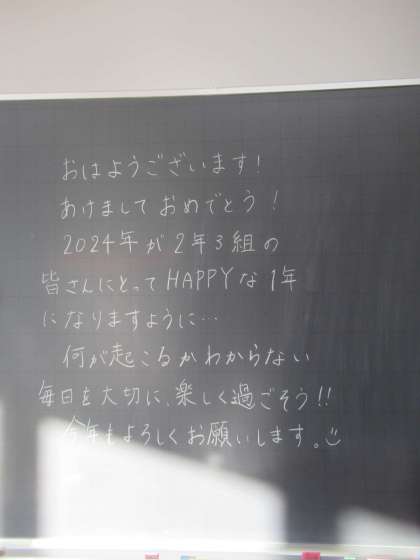 おはようございます!
あけましておめでとう!
2024年が2年3組の
皆さんにとってHAPPYな1年
になりますように…
何が起こるかわからない
毎日を大切に、楽しく過ごそう!!
今年もよろしくお願いします。☺